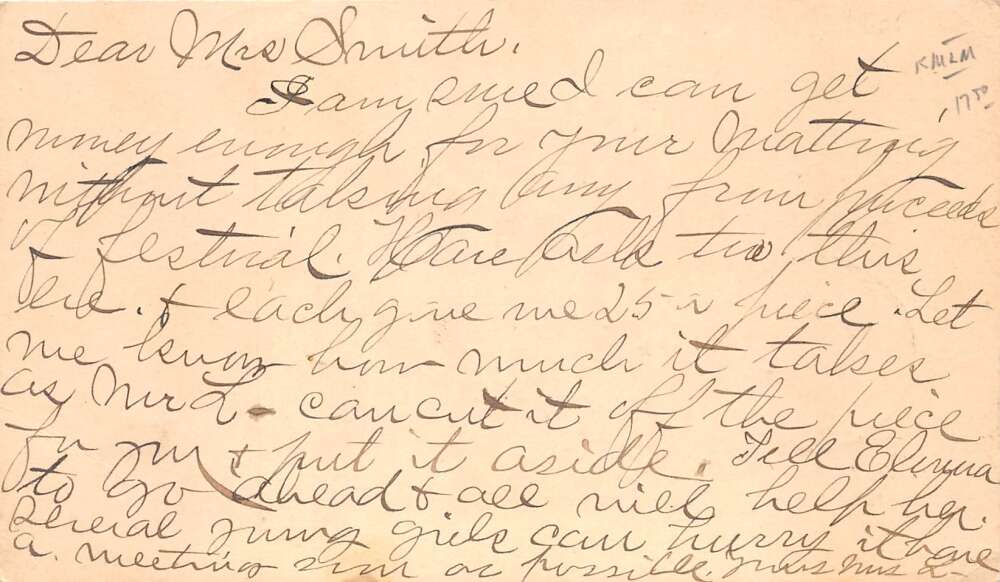 Dear Mrs Smith.
I am sure I can get
KMLM
17 50
money enough for your Matting
without taking any from proceeds
of festival. Have ask two this
eve. & each gave me 25 a piece. Let
me know how much it takes
as Mr L - can cut it off the piece
for you & put it aside. Tell Elmina
to go ahead & all will help her.
Several young girls can hurry it have
a meeting soon as possible. Yours Mrs L-